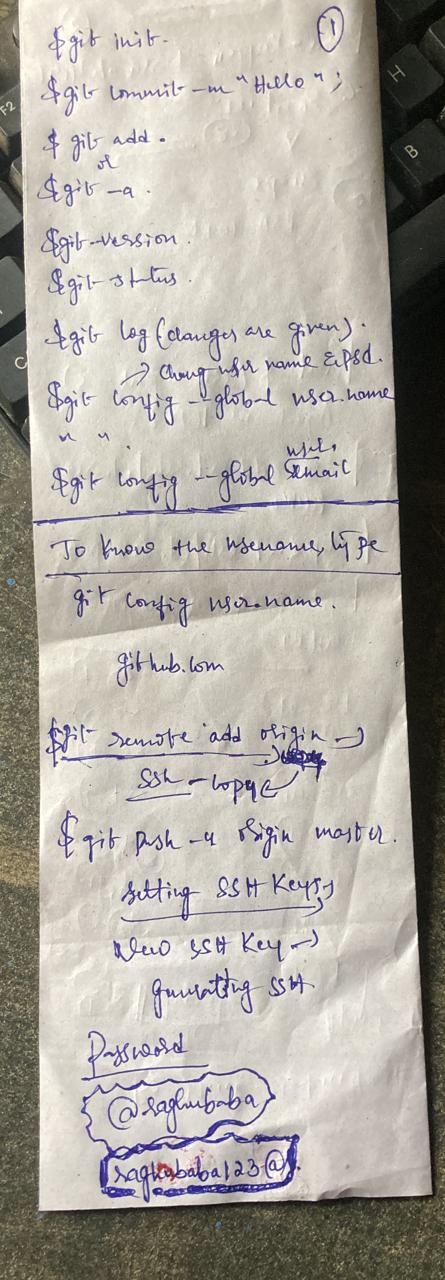 ①
$git init.
$git commit -m "Hello";
$ git add .
or
$git -a .
$git-version.
$git status.
$git log (changes are given).
→ Chang user name & psd.
$git config --global user.name
" " .
user.
$git config --global email
To know the usename, type
git config user.name.
github.com
$git remote add origin →
SSH - copy
$ git push -u origin master.
setting SSH Keys →
New SSH Key →
generating SSH
Password
@raghubaba
raghubaba123@.
F2
H
B
C